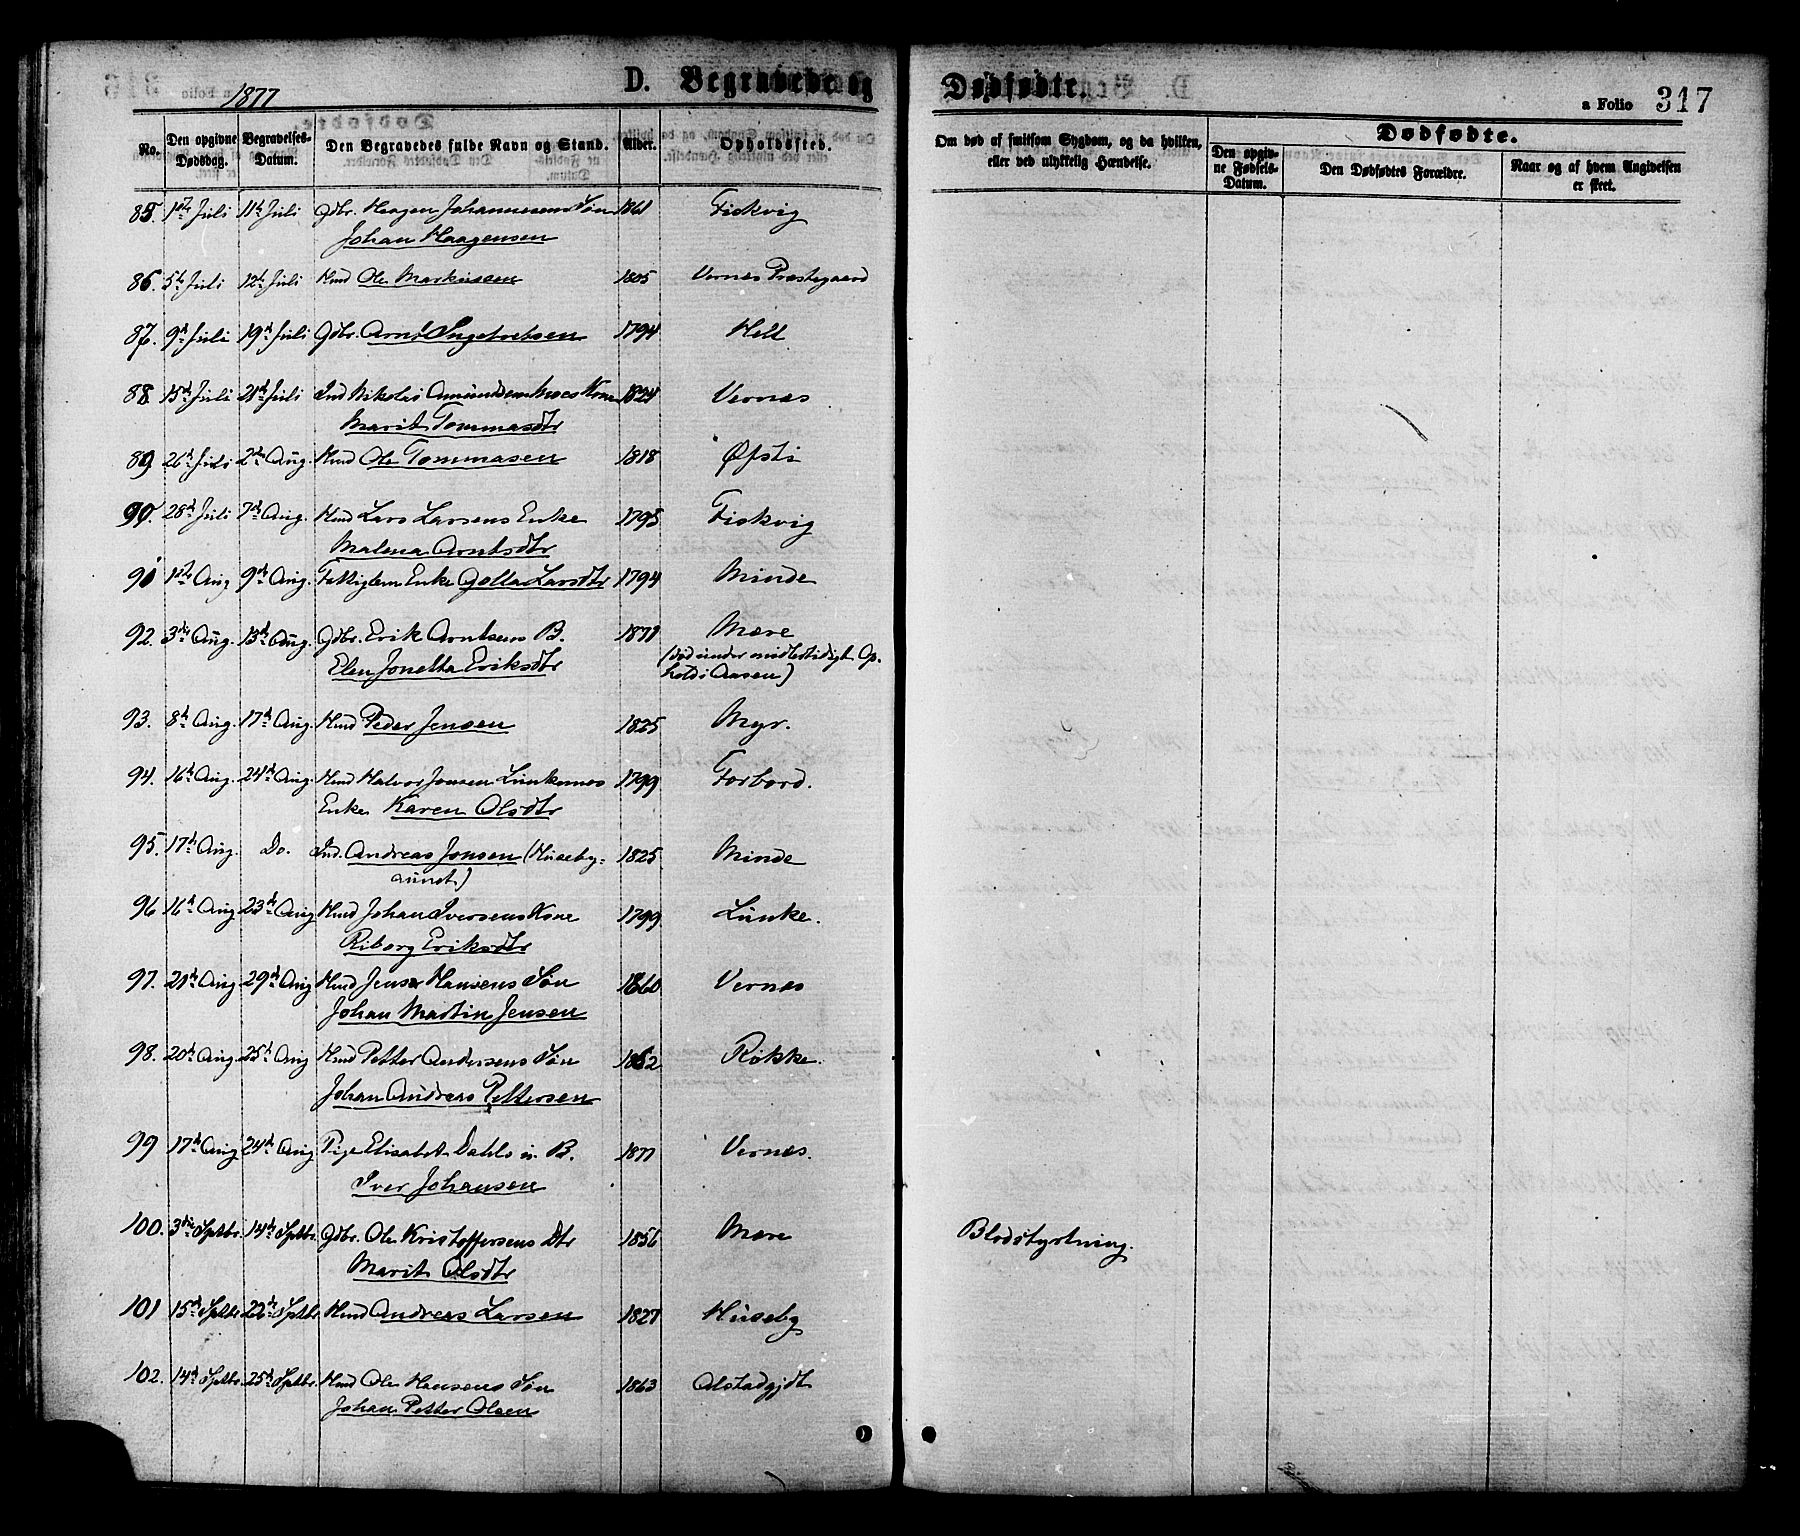 1877
D. Begravede og Dødfødte.
a Folio 317
No. Den opgivne Dødsdag. Begravelses-Datum. Den Begravedes fulde Navn og Stand. Alder. Opholdssted. Om død af smitsom Sygdom, og da hvilken, eller ved ulykkelig Hændelse. Dødfødte.
Den opgivne Fødsels-Datum. Den Dødfødtes Forældre. Naar og af hvem Angivelsen er skeet.
85 1ste Juli 11te Juli Gdbr. Haagen Johannesens Søn 1861 Fiskvig
Johan Haagensen
86. 5te Juli 12te Juli Hmd Ole Markussen 1805 Vernes Præstegaard
87. 9de Juli 19de Juli Gdbr. Arnt Ingebretsen 1794 Hell
88. 15de Juli 21de Juli Ind Nikolai Amundsen Kone 1824 Vernæs
Marit Tommasdtr
89 26de Juli 2den Aug. Hmd Ole Tommasen 1818 Øfsti
90. 28de Juli 7de Aug. Hmd Lars Larsens Enke 1795 Fiskvig
Malena Arntsdtr
91 1ste Aug 9de Aug. Fattiglem Enke Golla Larsdtr 1794 Minde
92. 3die Aug. 13de Aug. Gdbr. Erik Arntsens B. 1877 Mære
Elen Jonetta Eriksdtr (død under midlertidigt Op-
hold i Aasen)
93. 8de Aug. 17de Aug. Hmd Peder Jensen 1825 Myr.
94. 16de Aug. 24de Aug. Hmd Halvor Jonsen Lunkemoes 1799 Forbord.
Enke Karen Olsdtr
95. 17de Aug. Do. Ind. Andreas Jonsen (Huseby- 1825 Minde
aunet)
96 16de Aug 23de Aug Hmd Johan Iversens Kone 1799 Lunke.
Riborg Eriksdtr
97. 21de Aug 29de Aug Hmd Jens Hansens Søn 1860 Vernæs
Johan Martin Jensen
98. 20de Aug. 25de Aug Hmd Petter Andersens Søn 1862 Røkke.
Johan Andreas Pettersen
99 17de Aug 24de Aug Pige Elisabet Dahls u. B. 1877 Vernæs.
Iver Johansen
100. 3die Septbr. 14de Septbr. Gdbr. Ole Kristoffersens Dtr 1856 Mære Blodstyrtning.
Marit Olsdtr
101 15de Septbr 22de Septbr. Hmd Andreas Larsen 1827 Huseby
102. 14de Septbr. 25de Septbr. Hmd Ole Hansens Søn 1863 Alstadgjdt
Johan Petter Olsen